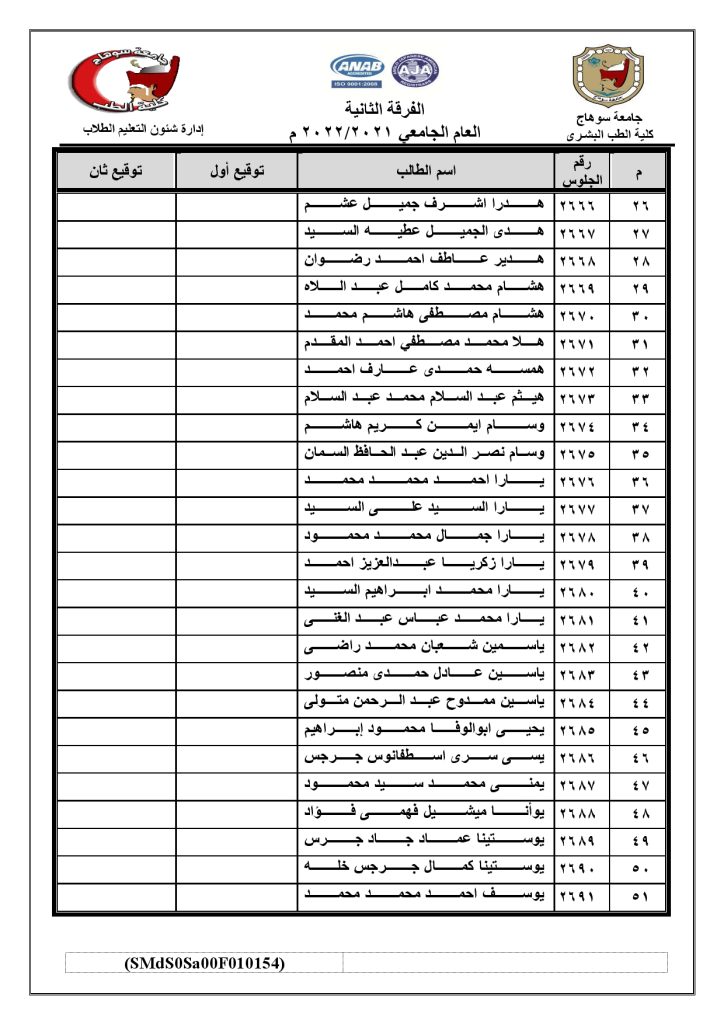 جامعة سوهاج
كلية الطب البشرى
ANAB
ACCREDITED
ISO 9001:2008
AJA
الفرقة الثانية
العام الجامعي ٢٠٢٢/٢٠٢١ م
جامعة سوهاج
كلية الطب
إدارة شئون التعليم الطلاب
م رقم الجلوس اسم الطالب توقيع أول توقيع ثان
٢٦ ٢٦٦٦ هدرا اشرف جميل عشم
٢٧ ٢٦٦٧ هدى الجميل عطيه السيد
٢٨ ٢٦٦٨ هدير عاطف احمد رضوان
٢٩ ٢٦٦٩ هشام محمد كامل عبد اللاه
٣٠ ٢٦٧٠ هشام مصطفى هاشم محمد
٣١ ٢٦٧١ هلا محمد مصطفي احمد المقدم
٣٢ ٢٦٧٢ همسه حمدى عارف احمد
٣٣ ٢٦٧٣ هيثم عبد السلام محمد عبد السلام
٣٤ ٢٦٧٤ وسام ايمن كريم هاشم
٣٥ ٢٦٧٥ وسام نصر الدين عبد الحافظ السمان
٣٦ ٢٦٧٦ يارا احمد محمد محمد
٣٧ ٢٦٧٧ يارا السيد على السيد
٣٨ ٢٦٧٨ يارا جمال محمد محمود
٣٩ ٢٦٧٩ يارا زكريا عبدالعزيز احمد
٤٠ ٢٦٨٠ يارا محمد ابراهيم السيد
٤١ ٢٦٨١ يارا محمد عباس عبد الغنى
٤٢ ٢٦٨٢ ياسمين شعبان محمد راضى
٤٣ ٢٦٨٣ ياسين عادل حمدى منصور
٤٤ ٢٦٨٤ ياسين ممدوح عبد الرحمن متولى
٤٥ ٢٦٨٥ يحيى ابوالوفا محمود إبراهيم
٤٦ ٢٦٨٦ يسى سرى اسطفانوس جرجس
٤٧ ٢٦٨٧ يمنى محمد سيد محمود
٤٨ ٢٦٨٨ يوأنا ميشيل فهمى فؤاد
٤٩ ٢٦٨٩ يوستينا عماد جاد جرس
٥٠ ٢٦٩٠ يوستينا كمال جرجس خله
٥١ ٢٦٩١ يوسف احمد محمد محمد
(SMdS0Sa00F010154)